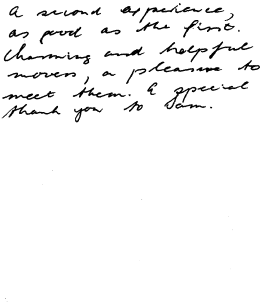 A second experience,
as good as the first.
Charming and helpful
movers, a pleasure to
meet them. A special
thank you to Sam.